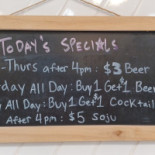 TODAY'S SPECIALS
-Thurs after 4pm: $3 Beer
day All Day: Buy 1 Get $1 Beer
All Day: Buy 1 Get $1 Cocktail
After 4pm: $5 Soju